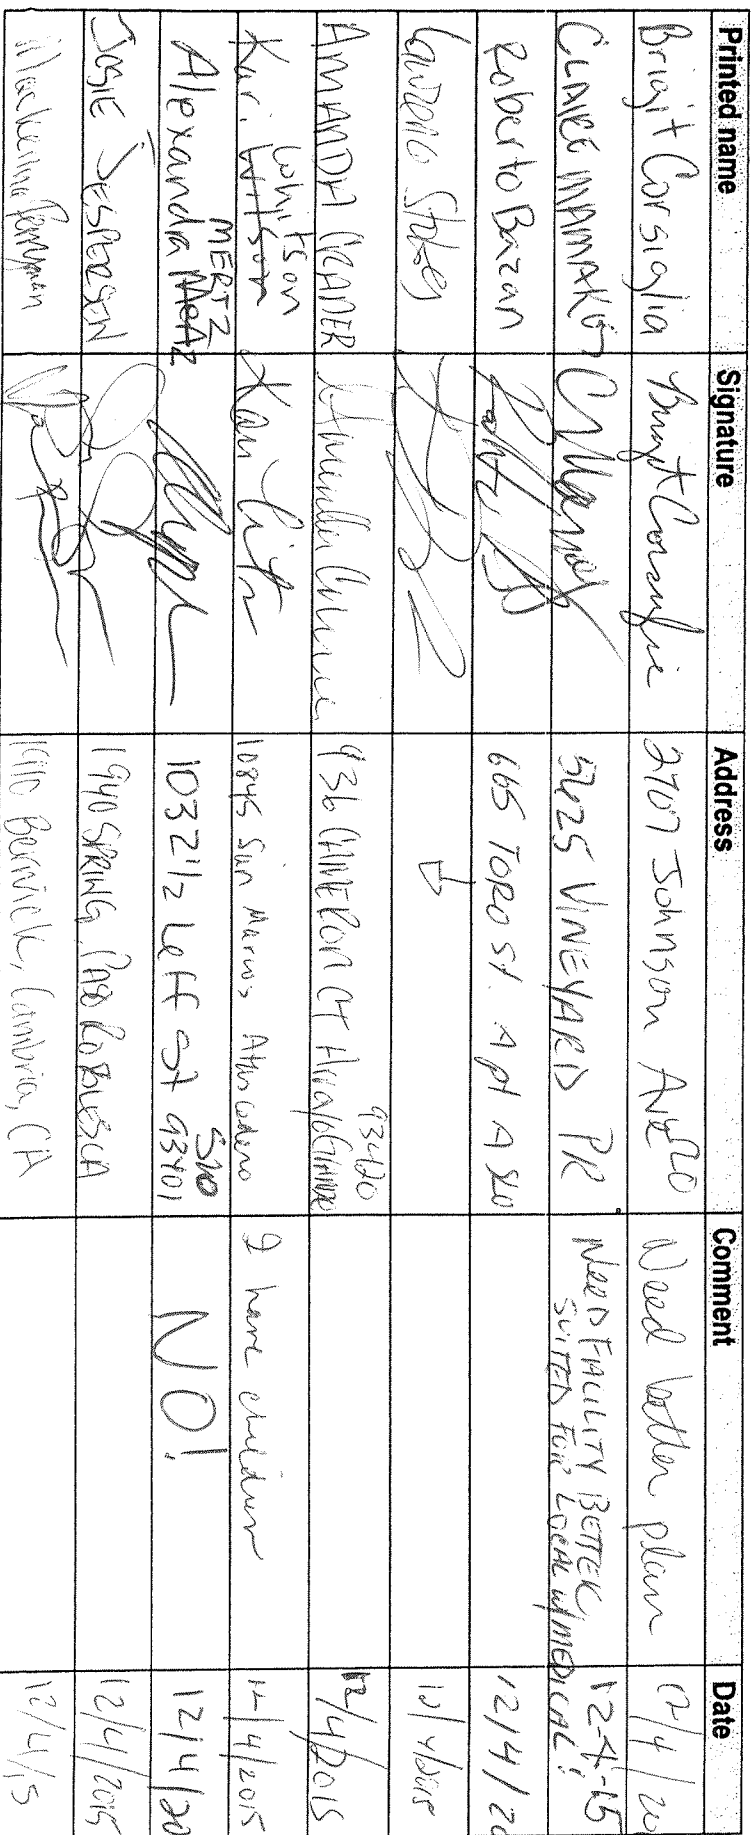 Printed name Signature Address Comment Date
Brigit Corsiglia 2707 Johnson Ave Need better plan 12/4/20
CLAIRE MAMAKOS 5625 VINEYARD PR NEED FACILITY BETTER 12-4-15
SUITED FOR LOCAL w/MEDICAL!
Roberto Bazan 665 TORO St. Apt A SLO 12/4/20
12/4/2015
AMANDA CRAMER 936 CAMERON CT Arroyo GRANDE 12/4/2015
93420
Kari Whitson Kari 10845 San Marcos Atascadero I have children 12/4/2015
MERTZ
Alexandra 1032 1/2 Leff St SLO 93401 NO! 12/4/20
JOSIE JESPERSEN 1940 SPRING, PASO ROBLES CA 12/4/2015
Perryman 1910 Berwick, Cambria, CA 12/4/15